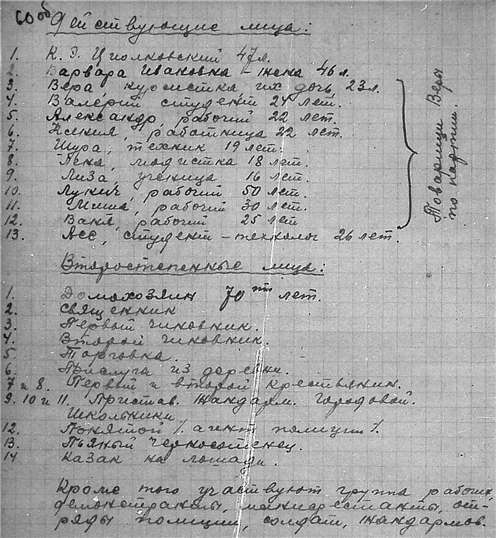 Действующие лица:
1. К. Э. Циолковский 47 л.
2. Варвара Ивановна - жена 46 л.
3. Вера, курсистка, их дочь, 23 л.
4. Валерий студент 24 лет.
5. Александр, рабочий 22 лет.
6. Ксения, работница 22 лет.
7. Шура, техник 19 лет.
8. Лена, модистка 18 лет.
9. Лиза, ученица 16 лет.
10. Лукич, рабочий 50 лет.
11. Миша, рабочий 30 лет.
12. Ваня, рабочий 25 лет
13. студент - технолог 26 лет.
Товарищи Веры
по партии.
Второстепенные лица:
1. Домохозяин 70ти лет.
2. Священник
3. Первый чиновник.
4. Второй чиновник.
5. Торговка.
6. Прислуга из деревни.
7 и 8. Первый и второй крестьянин.
9. 10 и 11. Пристав. Жандарм. Городовой.
Школьники
12. Понятой /. агент полиции /.
13. Пьяный черносотенец.
14 Казак на лошади.
Кроме того участвуют группа рабочих,
демонстранты, манифестанты, от-
ряды полиции, солдат, жандармов.